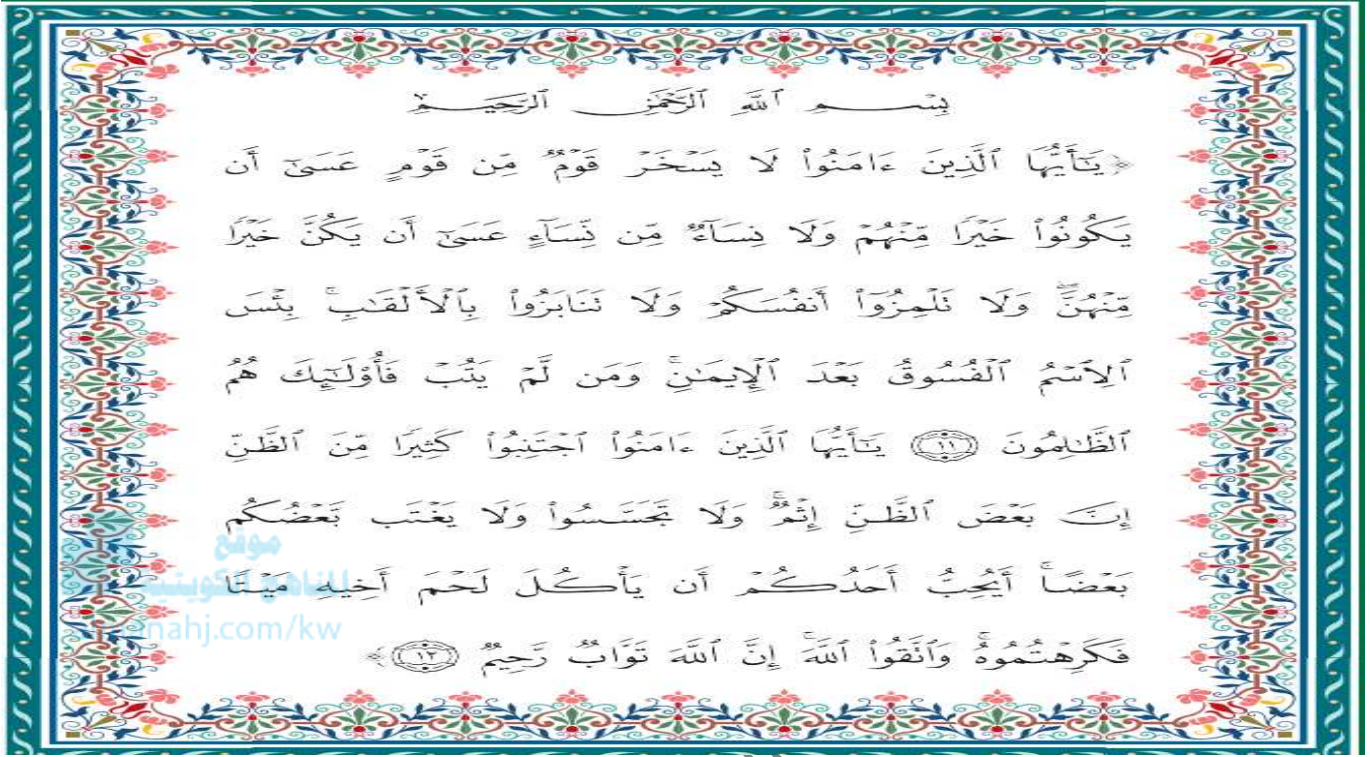 بِسْمِ ٱللَّهِ ٱلرَّحْمَٰنِ ٱلرَّحِيمِ
﴿يَٰٓأَيُّهَا ٱلَّذِينَ ءَامَنُوا۟ لَا يَسْخَرْ قَوْمٌ مِّن قَوْمٍ عَسَىٰٓ أَن
يَكُونُوا۟ خَيْرًا مِّنْهُمْ وَلَا نِسَآءٌ مِّن نِّسَآءٍ عَسَىٰٓ أَن يَكُنَّ خَيْرًا
مِّنْهُنَّ ۖ وَلَا تَلْمِزُوٓا۟ أَنفُسَكُمْ وَلَا تَنَابَزُوا۟ بِٱلْأَلْقَٰبِ ۖ بِئْسَ
ٱلِٱسْمُ ٱلْفُسُوقُ بَعْدَ ٱلْإِيمَٰنِ ۚ وَمَن لَّمْ يَتُبْ فَأُو۟لَٰٓئِكَ هُمُ
ٱلظَّٰلِمُونَ ١١ يَٰٓأَيُّهَا ٱلَّذِينَ ءَامَنُوا۟ ٱجْتَنِبُوا۟ كَثِيرًا مِّنَ ٱلظَّنِّ
إِنَّ بَعْضَ ٱلظَّنِّ إِثْمٌ ۖ وَلَا تَجَسَّسُوا۟ وَلَا يَغْتَب بَّعْضُكُم
بَعْضًا ۚ أَيُحِبُّ أَحَدُكُمْ أَن يَأْكُلَ لَحْمَ أَخِيهِ مَيْتًا
فَكَرِهْتُمُوهُ ۚ وَٱتَّقُوا۟ ٱللَّهَ ۚ إِنَّ ٱللَّهَ تَوَّابٌ رَّحِيمٌ ١٢﴾
موقع
المناهج الكويتية
almanahj.com/kw